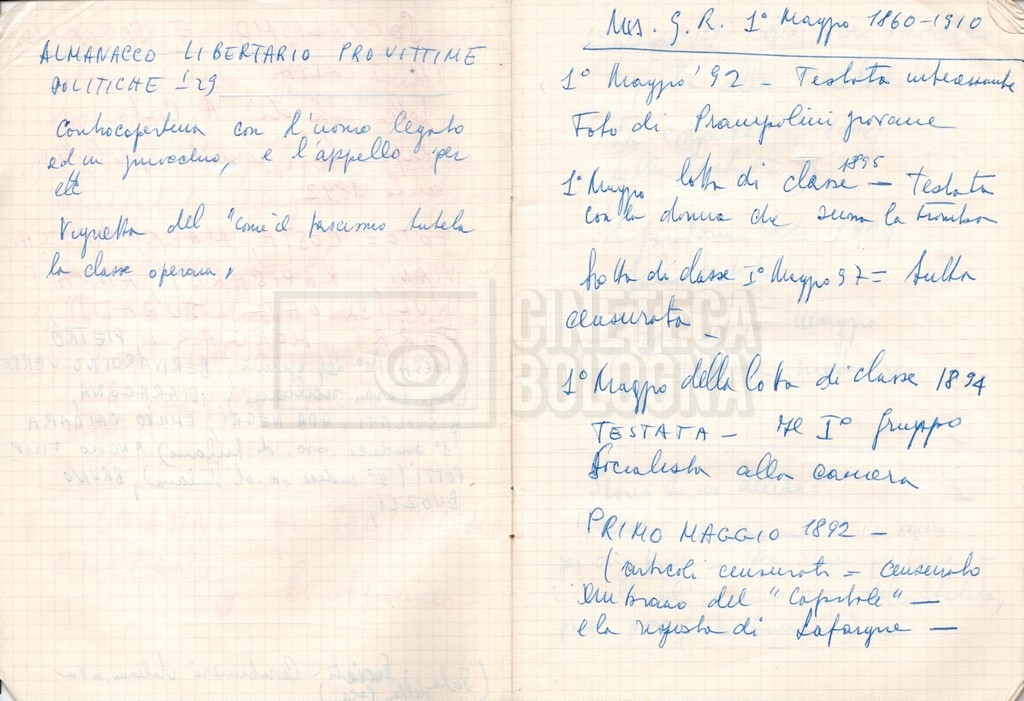 ALMANACCO LIBERTARIO PRO VITTIME
POLITICHE '29
Controcopertina con l'uomo legato
ed in ginocchio, e l'appello per
etc
Vignetta del "come il fascismo tutela
la classe operaia"
Mss. G. R. 1° Maggio 1860-1910
1° Maggio '92 - Testata interessante
Foto di Prampolini giovane
1° Maggio lotta di classe 1895 - Testata
con la donna che suona la tromba
Lotta di classe I° Maggio 97 = tutta
censurata -
1° Maggio della lotta di classe 1894
TESTATA - Il I° gruppo
Socialista alla camera
PRIMO MAGGIO 1892 -
l'articoli censurati = censurato
un brano del "Capitale" -
e la risposta di Lafargue -
CINETECA
BOLOGNA